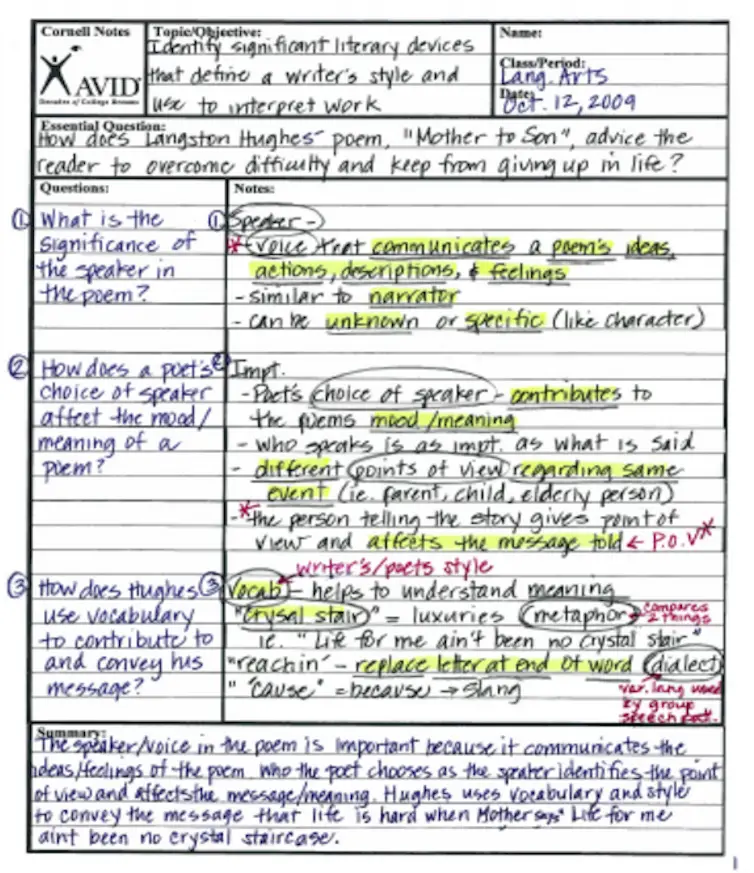 Cornell Notes
AVID
Decades of College Dreams
Topic/Objective:
Identify significant literary devices
that define a writer's style and
use to interpret work
Name:
Class/Period:
Lang. Arts
Date:
Oct. 12, 2009
Essential Question:
How does Langston Hughes' poem, "Mother to Son", advice the
reader to overcome difficulty and keep from giving up in life?
Questions:
① What is the
significance of
the speaker in
the poem?
② How does a poet's
choice of speaker
affect the mood/
meaning of a
poem?
③ How does Hughes
use vocabulary
to contribute to
and convey his
message?
Notes:
① Speaker -
* - voice that communicates a poem's ideas,
actions, descriptions, & feelings
- similar to narrator
- can be unknown or specific (like character)
② Impt.
- Poet's choice of speaker - contributes to
the poems mood/meaning
- who speaks is as impt. as what is said
- different points of view regarding same
event (ie. parent, child, elderly person)
- * the person telling the story gives point of
view and affects the message told ← P.O.V *
writer's/poets style
③ Vocab - helps to understand meaning
"crysal stair" = luxuries (metaphor) → compares
2 things
ie. "Life for me ain't been no crystal stair"
"reachin' - replace letter at end of word (dialect)
" 'cause" = because → slang
var. lang used
by group
Summary:
The speaker/voice in the poem is important because it communicates the
ideas/feelings of the poem. Who the poet chooses as the speaker identifies the point
of view and affects the message/meaning. Hughes uses vocabulary and style
to convey the message that life is hard when Mother says "Life for me
aint been no crystal staircase.